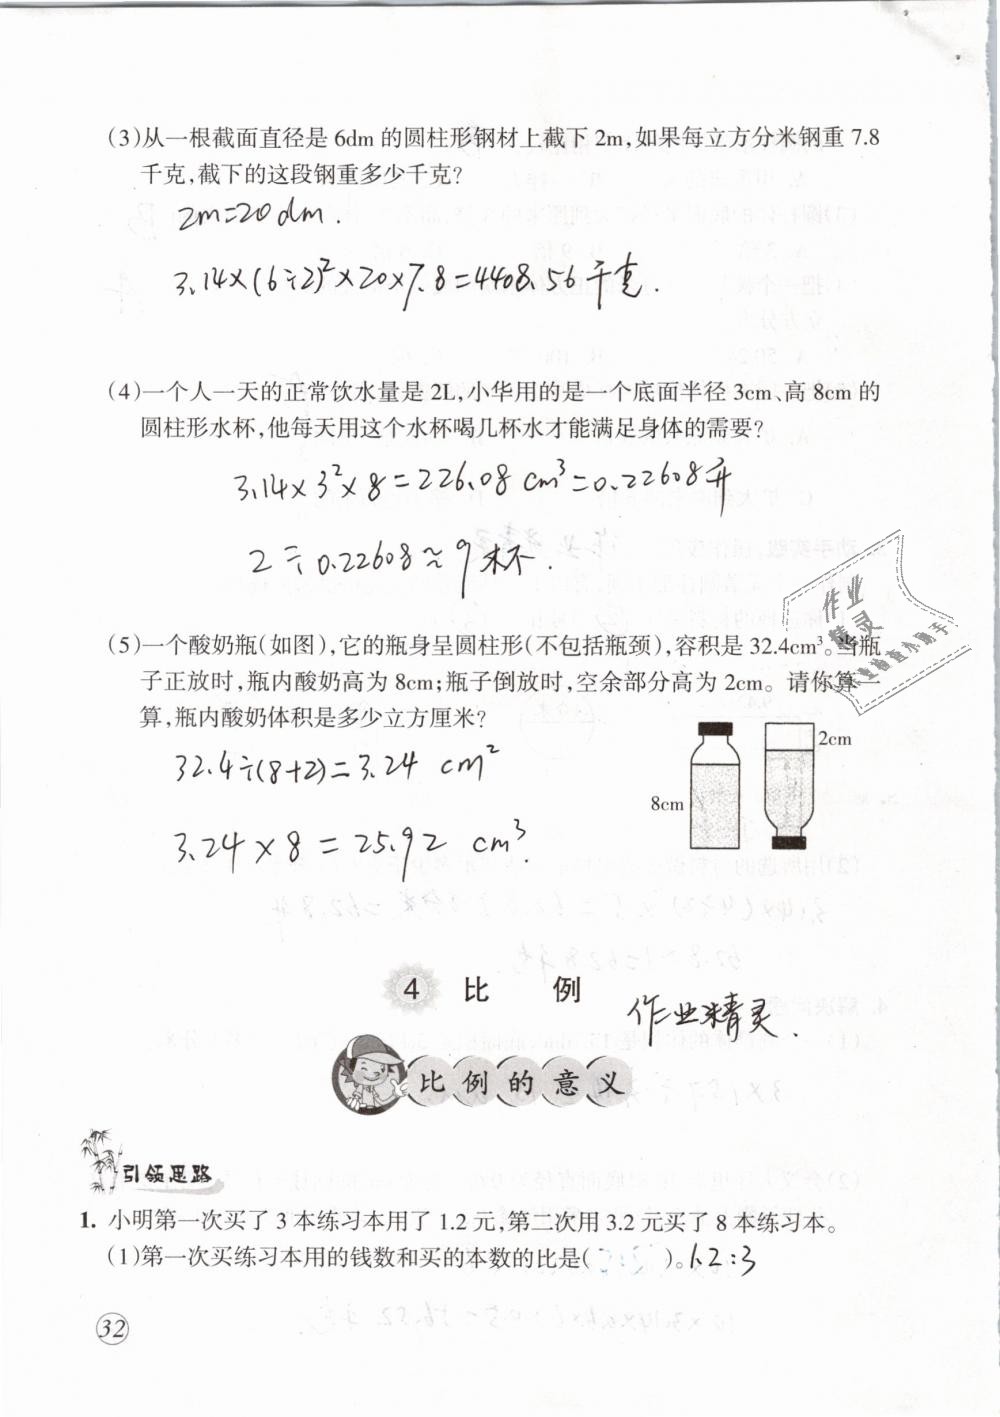 (3)从一根截面直径是 6dm 的圆柱形钢材上截下 2m,如果每立方分米钢重 7.8
千克,截下的这段钢重多少千克?
2m=20dm.
3.14×(6÷2)²×20×7.8=4408.56千克.
(4)一个人一天的正常饮水量是 2L,小华用的是一个底面半径 3cm、高 8cm 的
圆柱形水杯,他每天用这个水杯喝几杯水才能满足身体的需要?
3.14×3²×8=226.08cm³=0.22608升
2÷0.22608≈9杯.
(5)一个酸奶瓶(如图),它的瓶身呈圆柱形(不包括瓶颈),容积是 32.4cm³。当瓶
子正放时,瓶内酸奶高为 8cm;瓶子倒放时,空余部分高为 2cm。请你算一
算,瓶内酸奶体积是多少立方厘米?
作业
精灵
作业检查小助手
32.4÷(8+2)=3.24 cm²
3.24×8=25.92 cm³.
2cm
8cm
4 比 例
作业精灵.
比例的意义
引领思路
1. 小明第一次买了 3 本练习本用了 1.2 元,第二次用 3.2 元买了 8 本练习本。
(1)第一次买练习本用的钱数和买的本数的比是( )。1.2:3
32